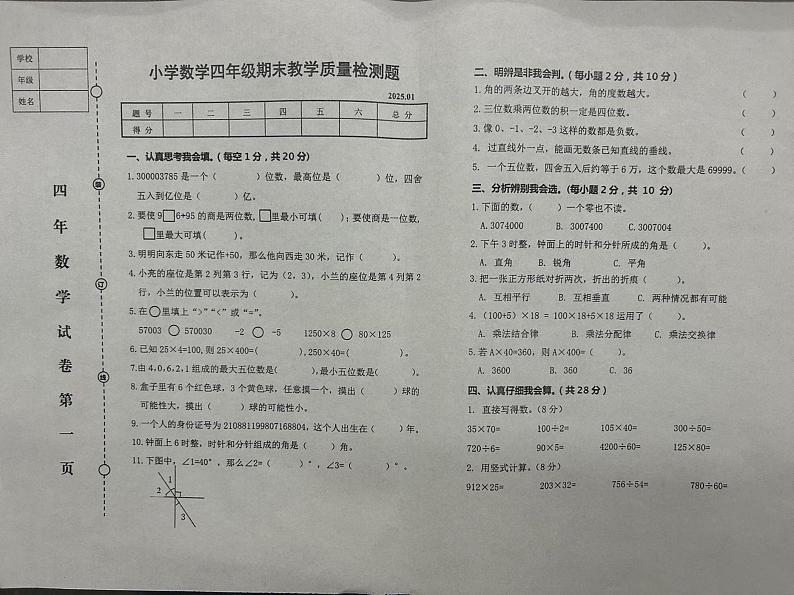 学校
年级
姓名
四年数学试卷第一页
装
订
线
小学数学四年级期末教学质量检测题
2025.01
题 号 一 二 三 四 五 六 总 分
得 分
一、认真思考我会填。(每空1分，共20分)
1.300003785是一个(   )位数，最高位是(   )位，四舍
五入到亿位是(   )亿。
2.要使9□6÷95的商是两位数，□里最小可填(   )；要使商是一位数，
□里最大可填(   )。
3.明明向东走50米记作+50，那么他向西走30米，记作(   )。
4.小亮的座位是第2列第3行，记为(2，3)，小兰的座位是第4列第2
行，小兰的位置可以表示为(   )。
5.在○里填上“>”“<”或“=”。
57003 ○ 570030   -2 ○ -5   1250×8 ○ 80×125
6.已知25×4=100,则25×400=(   ),250×40=(   )。
7.由4,0,6,2,1组成的最大五位数是(   ),最小五位数是(   )。
8.盒子里有6个红色球，3个黄色球，任意摸一个，摸出(   )球的
可能性大，摸出(   )球的可能性小。
9.一个人的身份证号为210881199807168804，这个人出生在(   )年。
10.钟面上6时整，时针和分针组成的角是(   )角。
11.下图中，∠1=40°，那么∠2=(   )°，∠3=(   )°。
1
2
3
二、明辨是非我会判。(每小题2分，共10分)
1.角的两条边叉开的越大，角的度数越大。 (   )
2.三位数乘两位数的积一定是四位数。 (   )
3.像0、-1、-2、-3这样的数都是负数。 (   )
4.过直线外一点，能画无数条已知直线的垂线。 (   )
5.一个五位数，四舍五入后约等于6万，这个数最大是69999。 (   )
三、分析辨别我会选。(每小题2分，共 10 分)
1.下面的数，(   )一个零也不读。
A.3074000   B. 3007400   C.3007004
2.下午3时整，钟面上的时针和分针所成的角是(   )。
A. 直角   B. 锐角   C. 平角
3.把一张正方形纸对折两次，折出的折痕(   )。
A. 互相平行   B. 互相垂直   C. 两种情况都有可能
4.(100+5)×18 = 100×18+5×18运用了(   )。
A. 乘法结合律   B. 乘法分配律   C. 乘法交换律
5.若A×40=360，则A×400=(   )。
A. 3600   B. 36   C. 360
四、认真仔细我会算。(共28分)
1. 直接写得数。(8分)
35×70=   100÷2=   105×40=   300÷50=
720÷6=   90×5=   4200÷60=   125×80=
2. 用竖式计算。(8分)
912×25=   203×32=   756÷54=   780÷60=